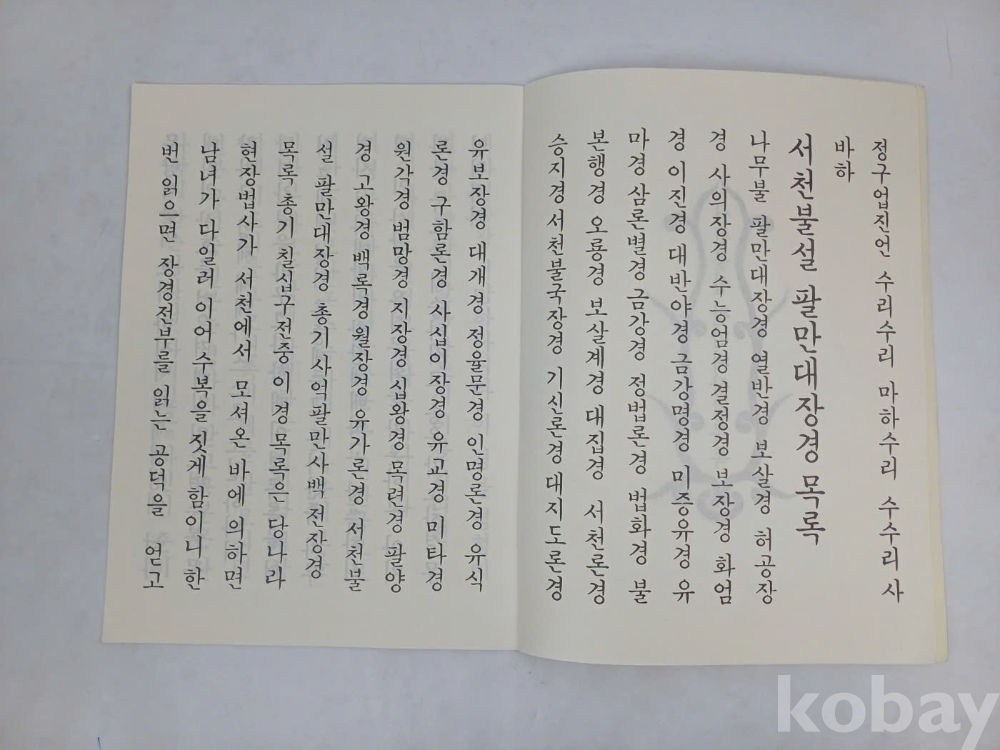 정구업진언 수리수리 마하수리 수수리 사
바하
서천불설 팔만대장경 목록
나무불 팔만대장경 열반경 보살경 허공장
경 사의장경 수능엄경 결정경 보장경 화엄
경 이진경 대반야경 금강명경 미증유경 유
마경 삼론별경 금강경 정법론경 법화경 불
본행경 오룡경 보살계경 대집경 서천론경
승지경 서천불국장경 기신론경 대지도론경
유보장경 대개경 정율문경 인명론경 유식
론경 구함론경 사십이장경 유교경 미타경
원각경 범망경 지장경 십왕경 목련경 팔양
경 고왕경 백록경 월장경 유가론경 서천불
설 팔만대장경 총기 사억팔만사백 전장경
목록 총기 칠십구전중 이 경 목록은 당나라
현장법사가 서천에서 모셔온 바에 의하면
남녀가 다일러 이어 수복을 짓게 함이니 한
번 읽으면 장경전부를 읽는 공덕을 얻고
kobay